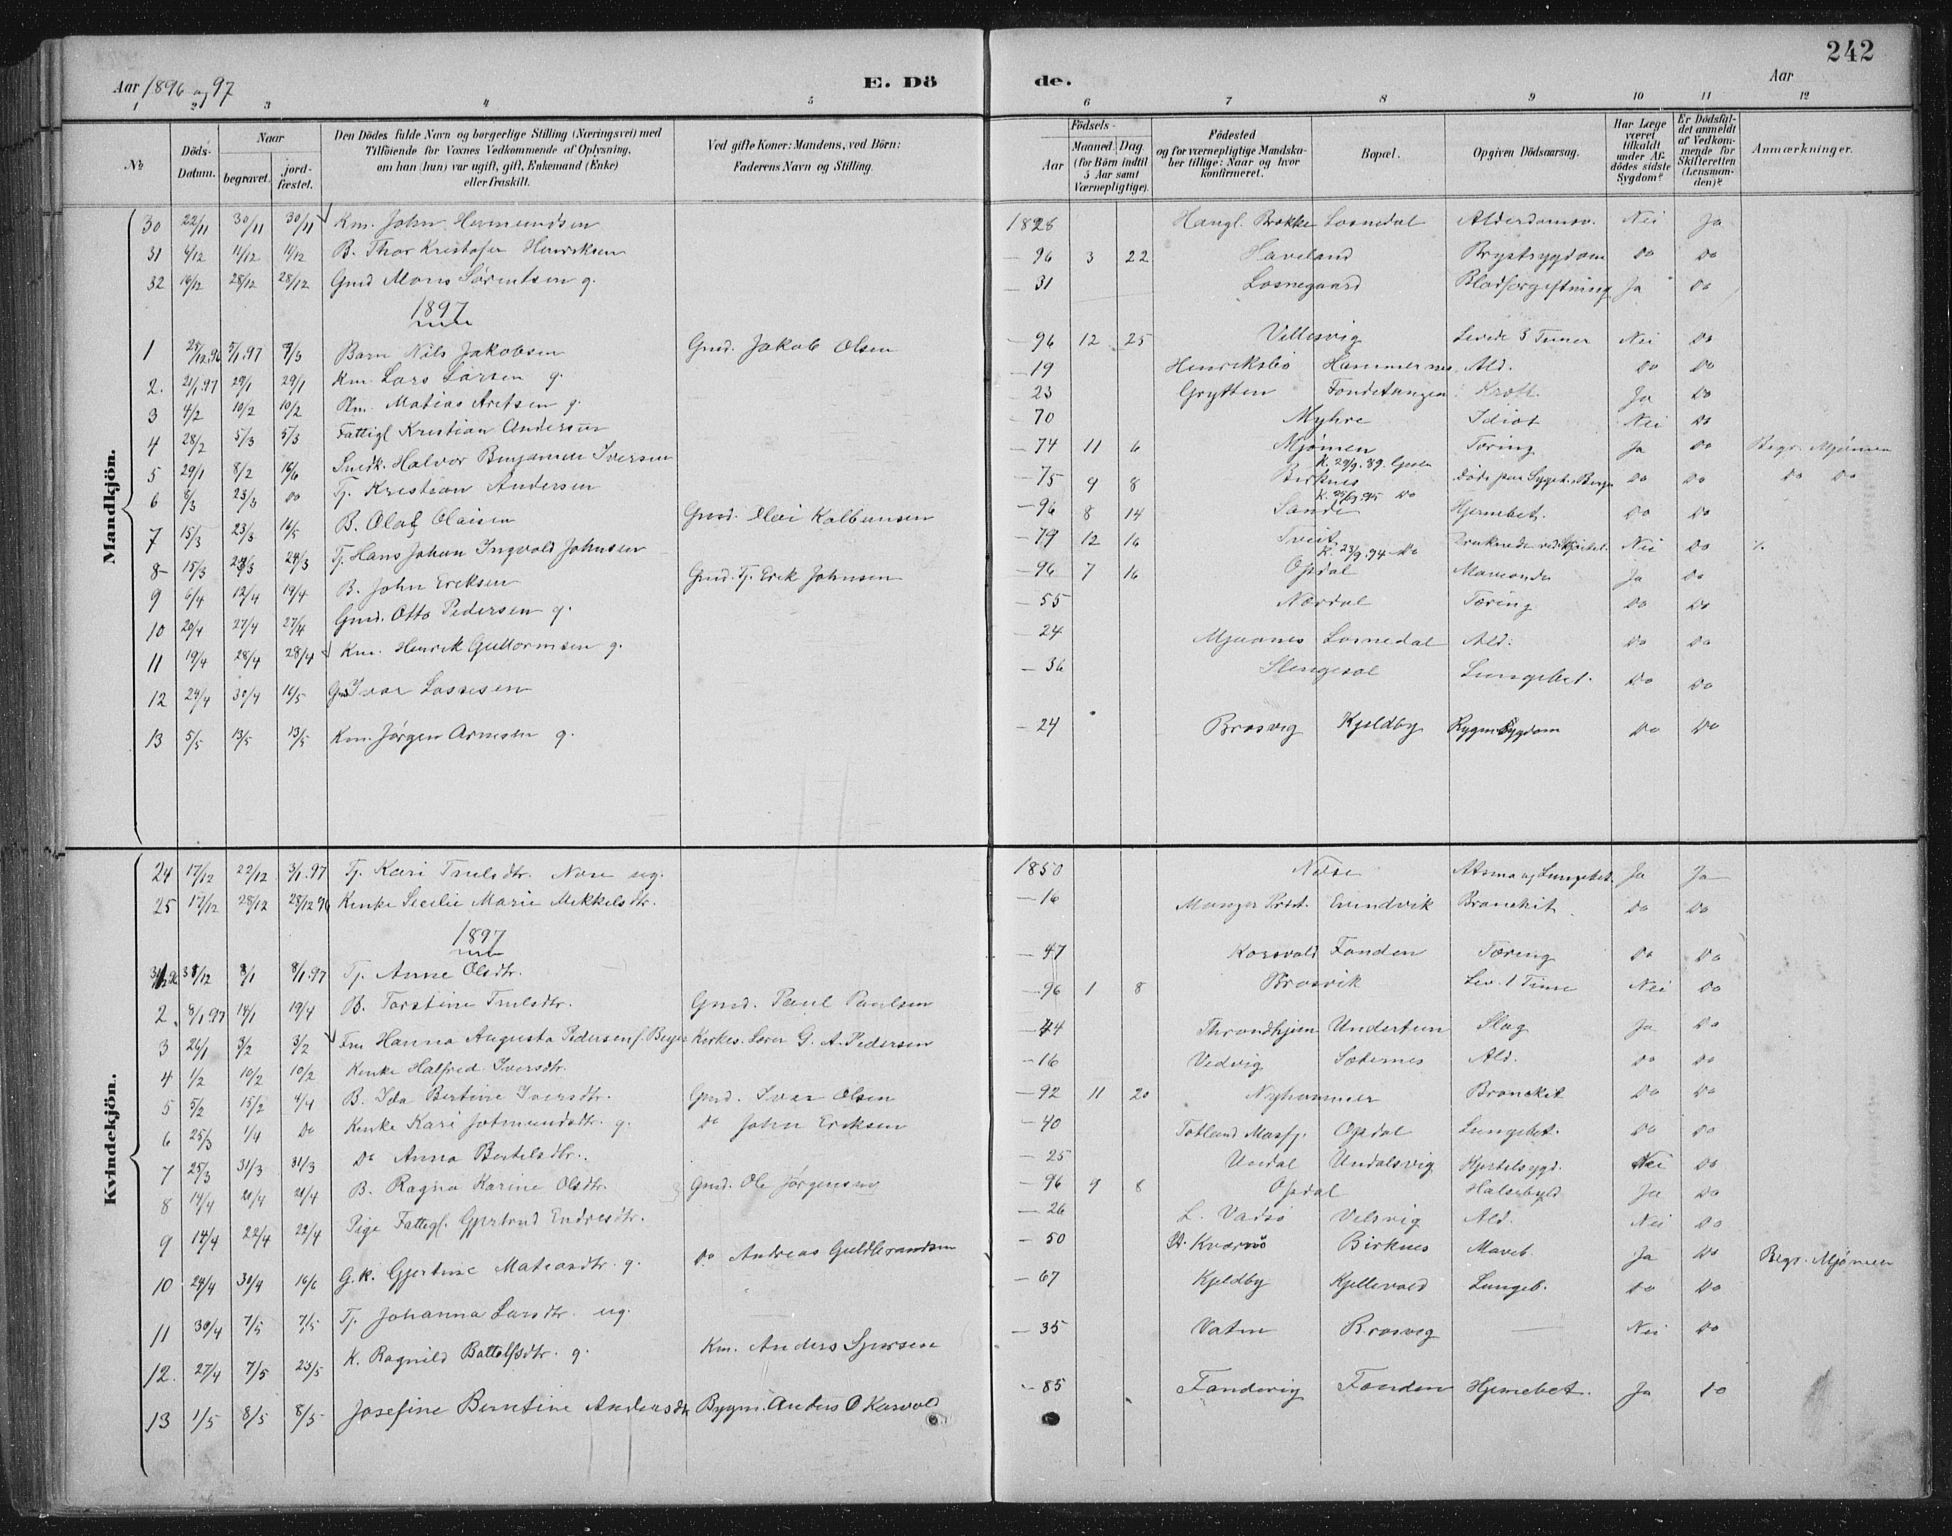 242
Aar 1896 og 97 E. Dö de. Aar
1 2 3 4 5 6 7 8 9 10 11 12
No Döds-Datum. Naar begravet. jord-fæstet. Den Dödes fulde Navn og borgerlige Stilling (Næringsvei) med Tilföiende for Voxnes Vedkommende af Oplysning, om han (hun) var ugift, gift, Enkemand (Enke) eller fraskilt. Ved gifte Koner: Mandens, ved Börn: Faderens Navn og Stilling. Födsels- Aar Maaned. Dag. (for Börn indtil 5 Aar samt Værnepligtige). Födested og for værnepligtige Mandskaber tillige: Naar og hvor konfirmeret. Bopæl. Opgiven Dödsaarsag. Har Læge været tilkaldt under Afdödes sidste Sygdom? Er Dödsfaldet anmeldt af Vedkommende for Skifteretten (Lensmanden)? Anmærkninger.
Mandkjön.
30 22/11 30/11 30/11 Km. John Hermundsen 1826 Hangl. Brekke Losnedal Alderdomsv. Nei Ja
31 4/12 11/12 11/12 B. Thor Kristofer Henriksen – 96 3 22 Haveland Brystsygdom Do Do
32 19/12 28/12 28/12 Gmd Mons Sørentsen g. – 31 Losnegaard Blodforgiftning Ja Do
1897
1 28/12.96 5/1.97 7/3 Barn Nils Jakobsen Gmd. Jakob Olsen – 96 12 25 Villesvig Levede 3 Timer Nei Do
2. 21/1.97 29/1 29/1 Km. Lars Larsen g. – 19 Henriksbö Hammersnes Ald. Do Do
3 4/2 10/2 10/2 Km. Matias Aretsen g. – 23 Grytten Fondetangen Kræft. Ja Do
4 28/2 5/3 5/3 Fattigl Kristian Andersen – 70 Myhre Idiot Nei Do
5 29/1 8/2 16/6 Snedk. Halvor Benjamin Iversen – 74 11 6 Mjömen K. 29/9.89. Tæring Ja Do Begr. Mjömen
6 8/3 23/3 Do Tj. Kristian Andersen – 75 9 8 Birknes Döde paa Syget. i Bergen Do Do Do Do
7 15/3 23/3 16/5 B. Olaf Olaisen Gmd. Olai Kolbensen – 96 8 14 Sande Hjernebet. Do Do
8 15/3 24/3 24/3 Tj. Hans Johan Ingvald Johnsen – 79 12 16 Tveit K. 23/9.94 Do Nei Do
9 6/4 12/4 19/4 B. John Eriksen Gmd. Tj. Erik Johnsen – 96 7 16 Opdal Maveonde Ja Do
10 20/4 27/4 27/4 Gmd. Otto Pedersen g. – 55 Nordal Tæring Do Do
11 19/4 28/4 28/4 Km. Henrik Guttormsen g. – 24 Mjaanes Losnedal Ald. Do Do
12 24/4 30/4 16/5 Gmd Ivar Lassesen – 36 Stengesol Lungebet. Do Do
13 5/5 13/5 13/5 Km. Jørgen Arnesen g. – 24 Brosvig Kjeldby Rygmsygdom Do Do
Kvindekjön.
24 17/12 22/12 3/1.97 Tj. Kari Paulsdtr. Nose ug. 1850 Nose Astma og Lungebet. Ja Ja
25 17/12 28/12 28/12 96 Kenke Secilie Marie Mikkelsdtr. – 16 Manger Prst. Evindvik Bronchit Do Do
1897
31/12 8/1 8/1.97 Tj. Anne Olsdtr. – 47 Korsvold Fonden Tæring Do Do
2. 8/1.97 14/1 19/4 B. Torstine Paulsdtr. Gmd. Paul Paulsen – 96 1 8 Brosvik Lev. 1 Time Nei Do
3 26/1 3/2 3/2 Fru Hanna Augusta Pedersen f. Beyer Kirkes. Lærer G. A. Pedersen – 44 Throndhjem Undertun Slag Ja Do
4 1/2 10/2 10/2 Kenke Halfred Iversdtr. – 16 Vedvig Sæternes Ald. Do Do
5 5/2 15/2 4/4 B. Ida Bertine Iversdtr. Gmd. Iver Olsen – 92 11 20 Nyhammer Bronckit Do Do
6 25/3 1/4 Do Kenke Kari Jotmundsdtr. g. Do John Eriksen – 40 Totland Masfj. Opdal Lungebet. Do Do
7 25/3 31/3 31/3 Do Anna Bertelsdtr. – 25 Undal Undalsvig Kjertelsygd. Nei Do
8 14/4 20/4 20/4 B. Ragna Karine Olsdtr. Gmd. Ole Jørgensen – 96 9 8 Opdal Halsebyld Ja Do
9 14/4 22/4 22/4 Pige Fattigl. Gjertrud Endresdtr. – 26 L. Vadsö Velsvig Ald. Nei Do
10 24/4 30/4 16/6 G.k. Gjertine Matiasdtr. g. Do Andreas Guldbrandsen – 50 Kværnö Birknes Maveb. Ja Do Begr. Mjömen
11 30/4 7/5 7/5 Tj. Johanna Larsdtr. ug. – 67 Kjeldby Kjellevold Lungeb. Do Do
12. 27/4 7/5 23/5 K. Ragnild Battolfsdtr. g. Km. Anders Sjursen – 35 Vaten Brosvig — Nei Do
13 1/5 8/5 8/5 Josefine Berntine Andersdtr Bygm. Anders O Korsvold – 85 Fondevig Fonden Hjernebet. Ja Do